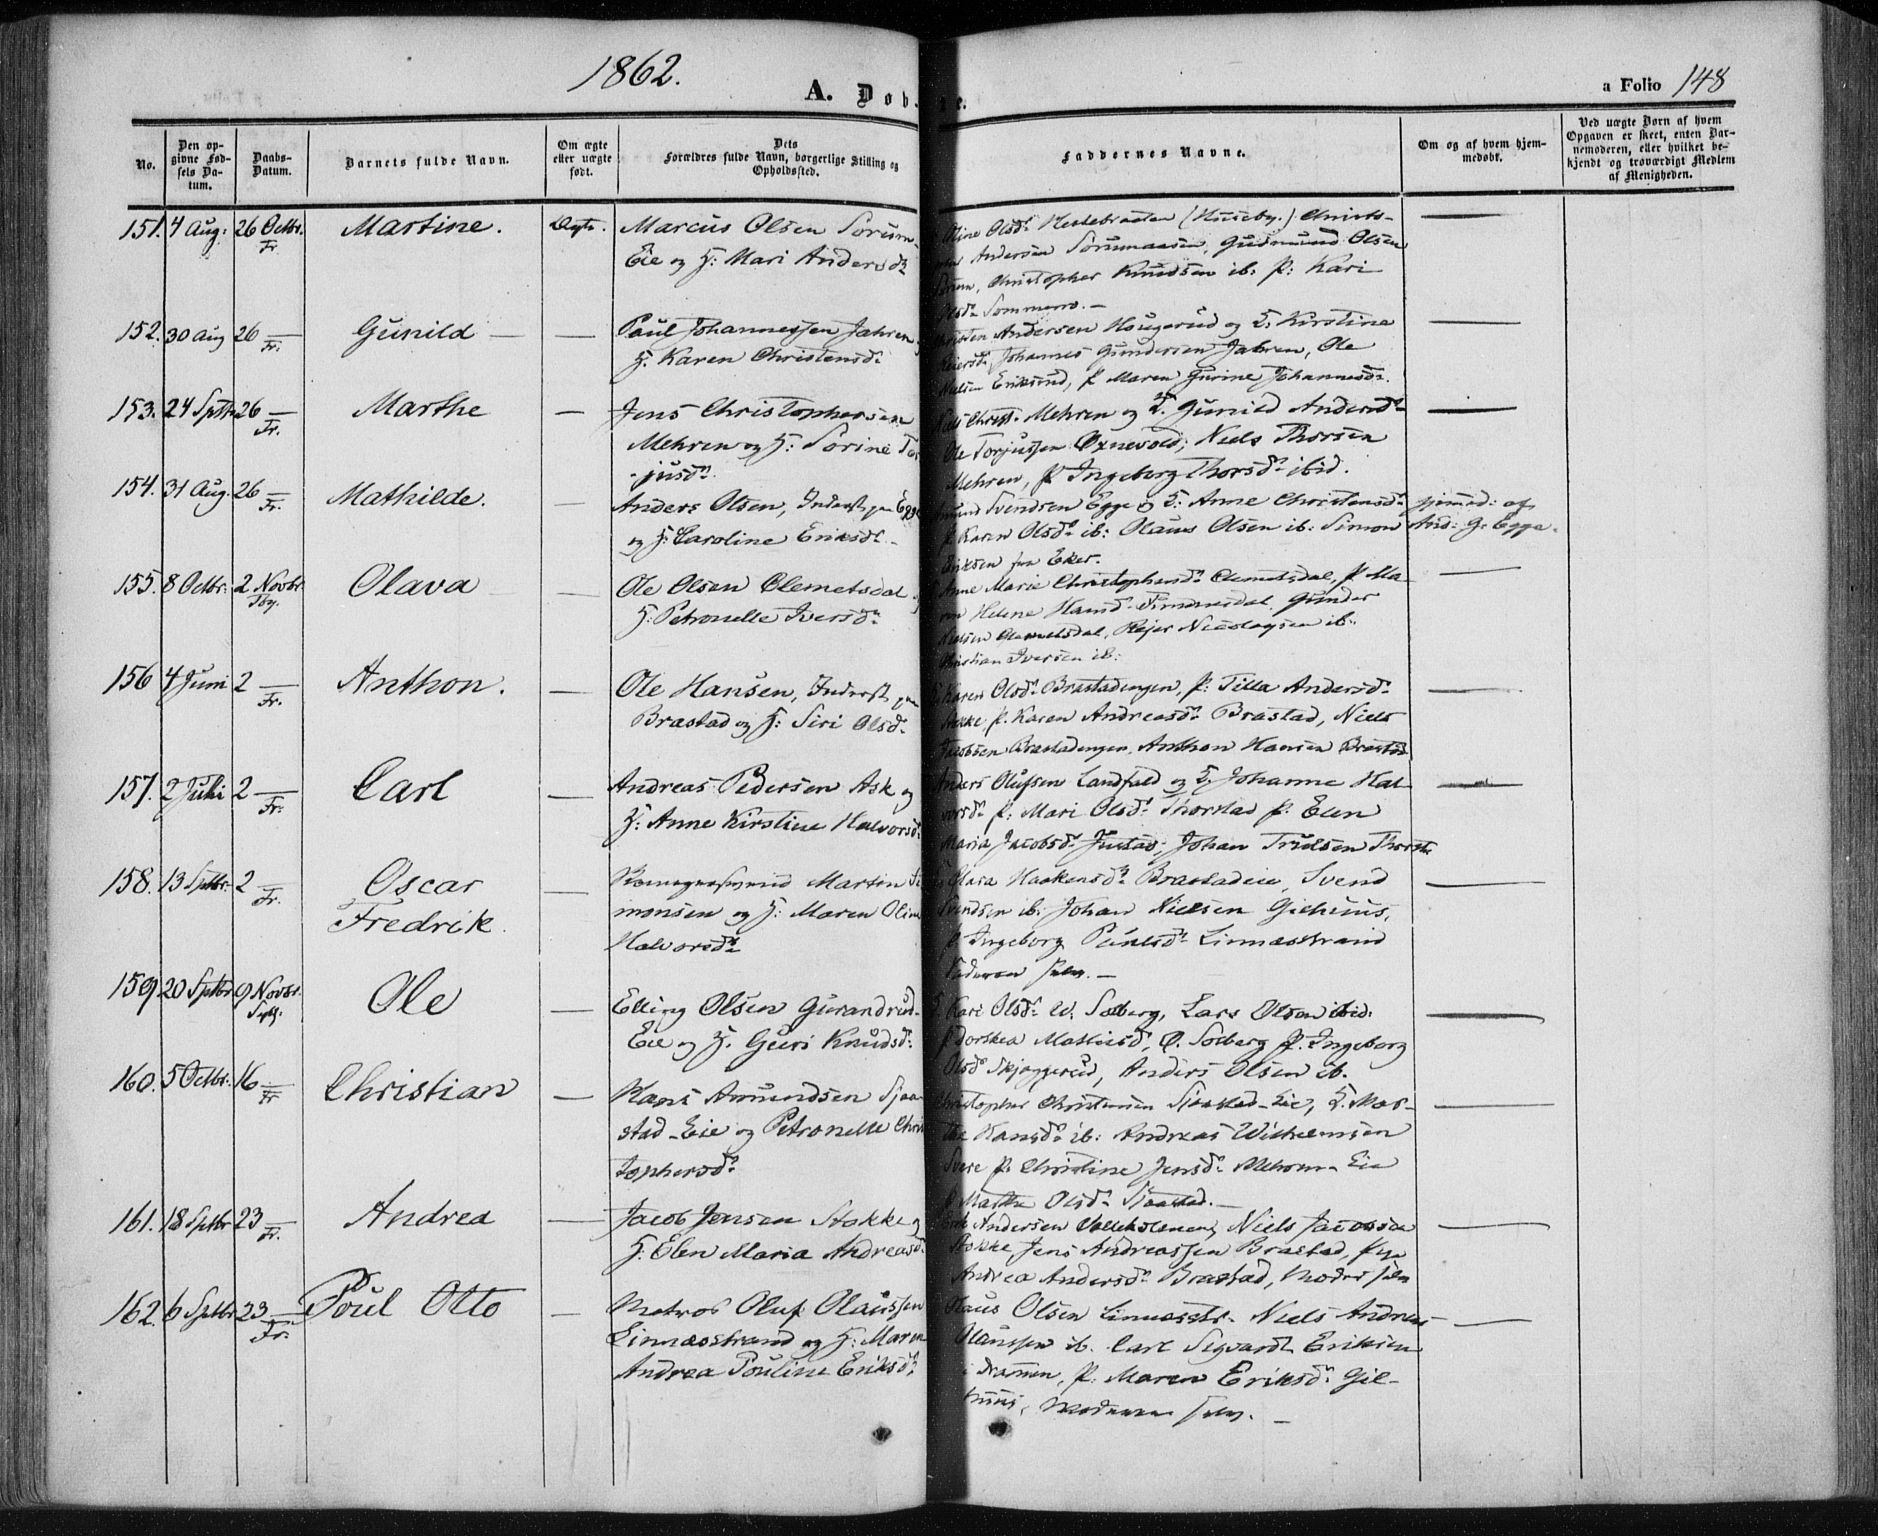 1862.
A. Døb
te.
a Folio 148
No.
Den opgivne Fødsels Datum.
Daabs-Datum.
Barnets fulde Navn.
Om ægte eller uægte født.
Dets Forældres fulde Navn, borgerlige Stilling og Opholdssted.
Faddernes Navne.
Om og af hvem hjemmedøbt.
Ved uægte Børn af hvem Opgaven er skeet, enten Barnemoderen, eller hvilket bekjendt og troværdigt Medlem af Menigheden.
151. 4 Aug: 26 Octbr. Fr. Martine. Ægte. Marcus Olsen Sorum
Eie og H: Mari Andersd:
Oline Olsd: Hestebraaten (Huseby.) Christo-
Andersen Sorumaasen, Gudmund Olsen
Christopher Knudsen ib: P: Kari
Olsd:
152. 30 Aug 26 — Fr. Gunild — — Paul Johannessen Jahren
H. Karen Christensd:
Andersen Haugerud og H. Kirstine
Johannes Gundersen Jahren, Ole
Nielsen Eriksrud, P Maren Gurine Johannesd:
153. 24 Sptbr 26 — Fr. Marthe — Jens Christophersen
Mehren og H: Sorine Tor
-jusd:
Mehren og H. Gunild Andersd:
Ole Torjussen Oxnevold, Niels Thorsen
Mehren, P Ingeborg Thorsd: ibid.
154. 31 Aug. 26 — Fr. Mathilde. — Anders Olsen, Inderst paa Egge
og H: Caroline Eriksd:
Svendsen Egge og H: Anne Christensd:
P Karen Olsd: ib: Olaus Olsen ib: Simon
Eriksen fra Eker.
hjemmed: af
And: G: Egge.
155. 8 Octbr: 2 Novbr. Olava — Ole Olsen Clemetsdal
H: Petronelle Iversd:
Anne Marie Christophersd: Clemetsdal, P Ma-
ren Helene Hansd: Gunder
Nielsen Clemetsdal, Reier Nicolaysen ib:
Christian Iversen ib:
156 4 Juni 2 — Fr. Anthon. — Ole Hansen, Inderst paa
Brastad og H: Siri Olsd:
Karen Olsd: Brastadengen, P: Tilla Andersd:
Stokke, P. Karen Andreasd: Brastad, Niels
Jacobsen Brastadengen, Anthon Hansen Brastad
157. 2 Juli 2 — Fr. Carl — Andreas Pedersen Ask og
H: Anne Kirstine Halvorsd:
Anders Olufsen Landfald og H. Johanne Hal-
vorsd: P: Mari Olsd: Thorstad P: Elen
Maria Jacobsd: Justad, Johan Trulsen Thorst
158. 13 Sptbr: 2 — Fr. Oscar
Fredrik. — Martin Si
monsen og H: Maren Oline
Halvorsd:
Olara Haakensd: Brastadeie, Svend
Svendsen ib: Johan Nielsen Gilhuus,
P Ingeborg Paulsd: Linnæsstrand
Faderen selv. —
159. 20 Sptbr 9 Novbr. Ole — Elling Olsen Gurandrud-
Eie og H. Guri Knudsd:
Kari Olsd: V. Solberg, Lars Olsen ibid:
P Dorthea Mathisd: Ø. Solberg P. Ingeborg
Olsd: Skjæggerud, Anders Olsen ib.
160. 5 Octbr. 16 — Fr. Christian — Hans Amundsen Sjaa-
stad-Eie og Petronelle Chris
tophersd:
Christopher Christensen Sjaastad-Eie, H. Mar-
the Hansd: ib: Andreas Wilhelmsen
P. Christine Jensd: Mehren-Eie
P Marthe Olsd: Sjaastad. —
161. 18 Sptbr 23 — Fr. Andrea — Jacob Jensen Stokke og
H. Elen Maria Andreasd:
Andersen Niels Jacobsen
Stokke Jens Andreassen Brastad, Pige
Andrea Andersd: Brastad, Moder selv
162. 6 Sptbr 23 — Fr. Poul Otto — Matros Oluf Olaussen
Linnæsstrand og H: Maren
Andrea Pouline Eriksd:
Olaus Olsen Linnæsstr. Niels Andreas
Olaussen ib. Carl Sigvardt Eriksen
i Dramen, P: Maren Eriksd: Gil-
huus, Moderen selv. —